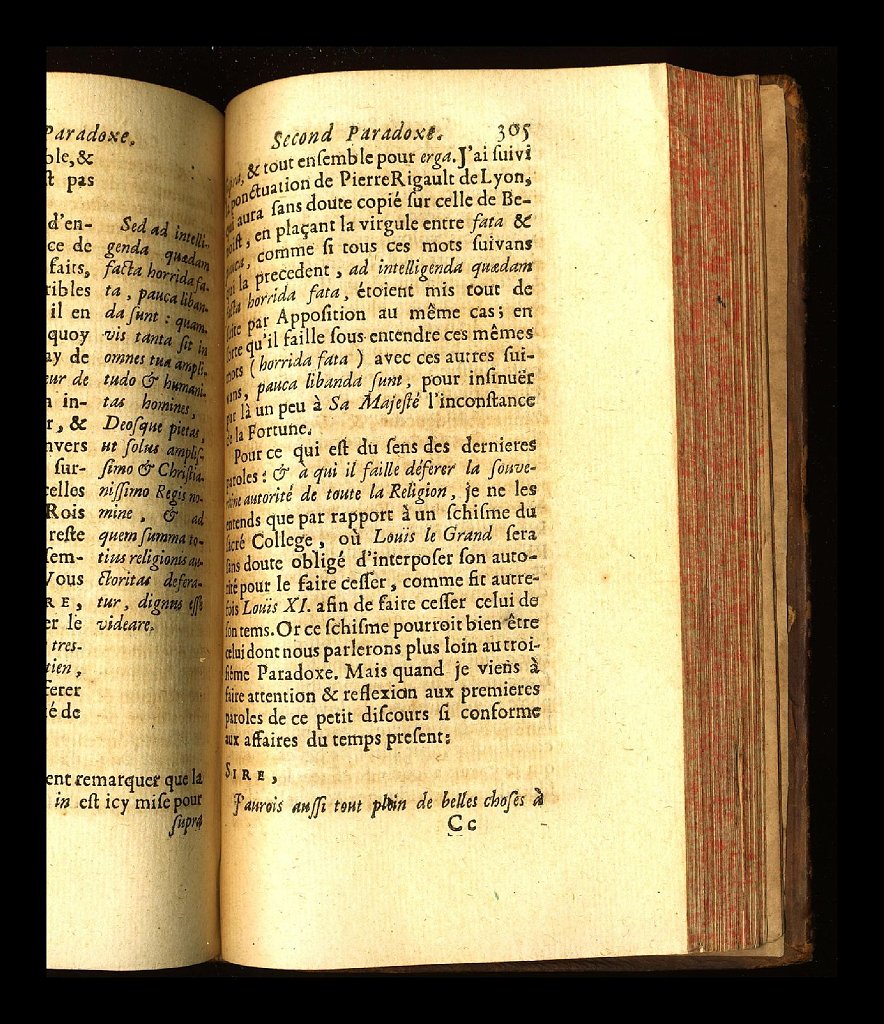 Paradoxe.
ble, &
st pas
d'en-
ce de
faits,
ribles
il en
quoy
ay de
eur de
n in-
r, &
nvers
sur-
celles
Rois
reste
sem-
Vous
RE,
er le
tres-
tien,
ferer
é de
Sed ad intelli-
genda quædam
facta horrida fa-
ta, pauca liban-
da sunt : quam-
vis tanta sit in
omnes tua ampli-
tudo & humani-
tas homines,
Deosque pietas,
ut solus amplis-
simo & Christia-
nissimo Regis no-
mine, & ad
quem summa to-
tius religionis au-
ctoritas defera-
tur, dignus esse
videare.
ent remarquer que la
in est icy mise pour
supra
Second Paradoxe. 305
supra, & tout ensemble pour erga. J'ai suivi
la ponctuation de Pierre Rigault de Lyon,
qui aura sans doute copié sur celle de Be-
noist, en plaçant la virgule entre fata &
pauca, comme si tous ces mots suivans
qui la precedent, ad intelligenda quædam
facta horrida fata, étoient mis tout de
suite par Apposition au même cas ; en
sorte qu'il faille sous-entendre ces mêmes
mots ( horrida fata ) avec ces autres sui-
vans, pauca libanda sunt, pour insinuër
par là un peu à Sa Majesté l'inconstance
de la Fortune.
Pour ce qui est du sens des dernieres
paroles : & à qui il faille déferer la souve-
raine autorité de toute la Religion, je ne les
entends que par rapport à un schisme du
sacré College, où Louis le Grand sera
sans doute obligé d'interposer son auto-
rité pour le faire cesser, comme fit autre-
fois Louïs XI. afin de faire cesser celui de
son tems. Or ce schisme pourroit bien être
celui dont nous parlerons plus loin au troi-
siéme Paradoxe. Mais quand je viens à
faire attention & reflexion aux premieres
paroles de ce petit discours si conforme
aux affaires du temps present :
SIRE,
J'aurois aussi tout plein de belles choses à
Cc